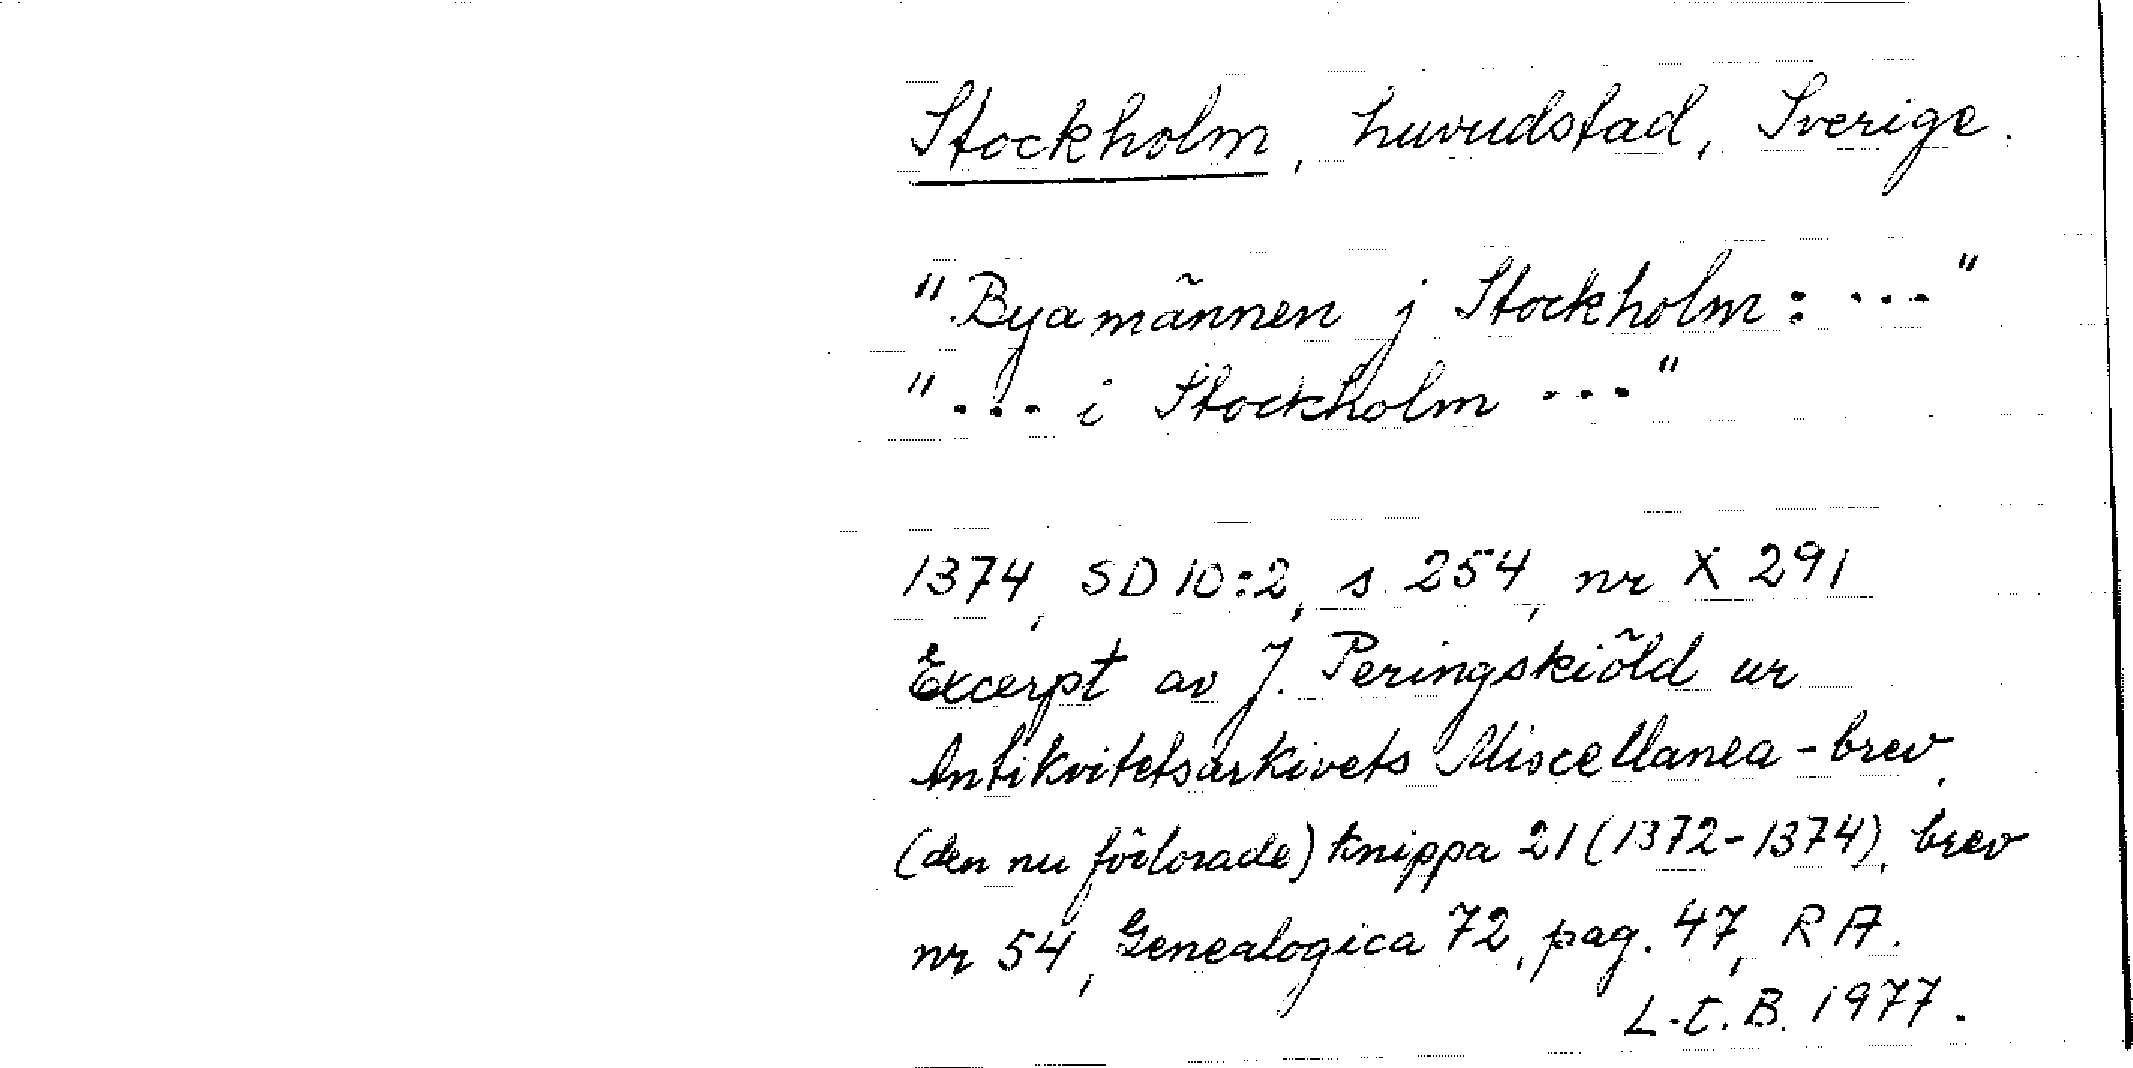 Stockholm, huvudstad, Sverige.
"Byamännen j Stockholm: ..."
"... i Stockholm ..."
1374, SD 10:2, s 254, nr X 291
Excerpt av J. Peringskiöld ur
Antikvitetsarkivets Miscellanea-brev,
(den nu förlorade) knippa 21 (1372-1374), brev
nr 54, Genealogica 72, pag. 47, RA.
L.-E. B. 1977.